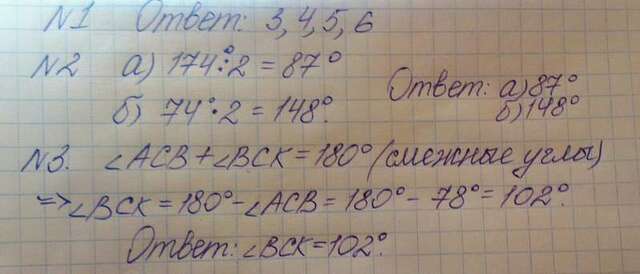 N1 Ответ: 3, 4, 5, 6
N2 а) 174°:2 = 87°
б) 74°·2 = 148°.
Ответ: а) 87°
б) 148°
N3. ∠ACB + ∠BCK = 180° (смежные углы)
=> ∠BCK = 180° - ∠ACB = 180° - 78° = 102°.
Ответ: ∠BCK = 102°.